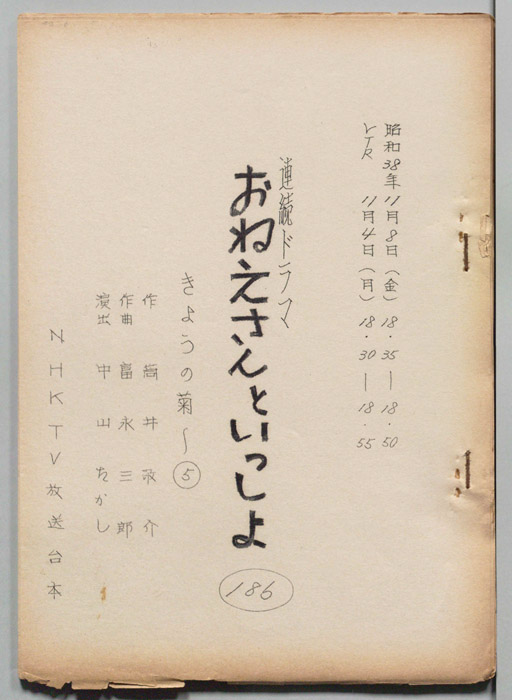 昭和38年11月8日（金）18.35―18.50
VTR 11月4日（月）18.30―18.55
連続ドラマ
おねえさんといっしょ
186
きょうの菊〜⑤
作 筒井敬介
作曲 富永三郎
演出 中山ちかし
NHKTV放送台本